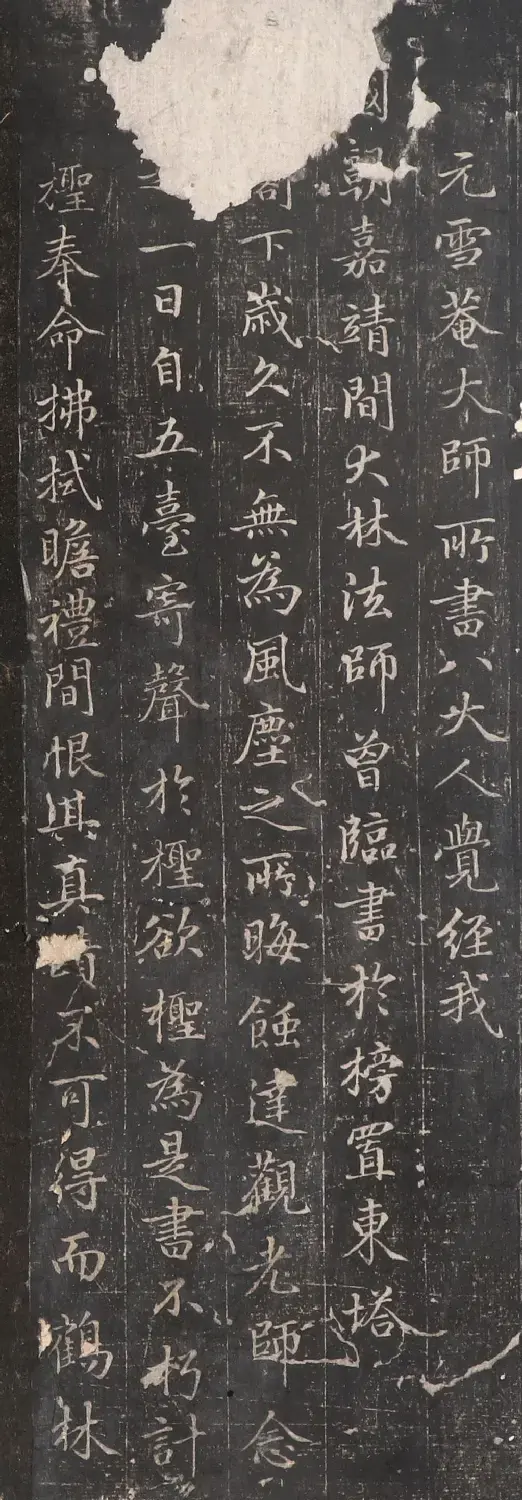 元雪菴大師所書八大人覺經我
國朝嘉靖間大林法師曾臨書於榜置東塔
閣下歲久不無為風塵之所晦蝕達觀老師念
一日自五臺寄聲於檉欲檉為是書不朽計
檉奉命拂拭瞻禮間恨其真蹟不可得而鶴林